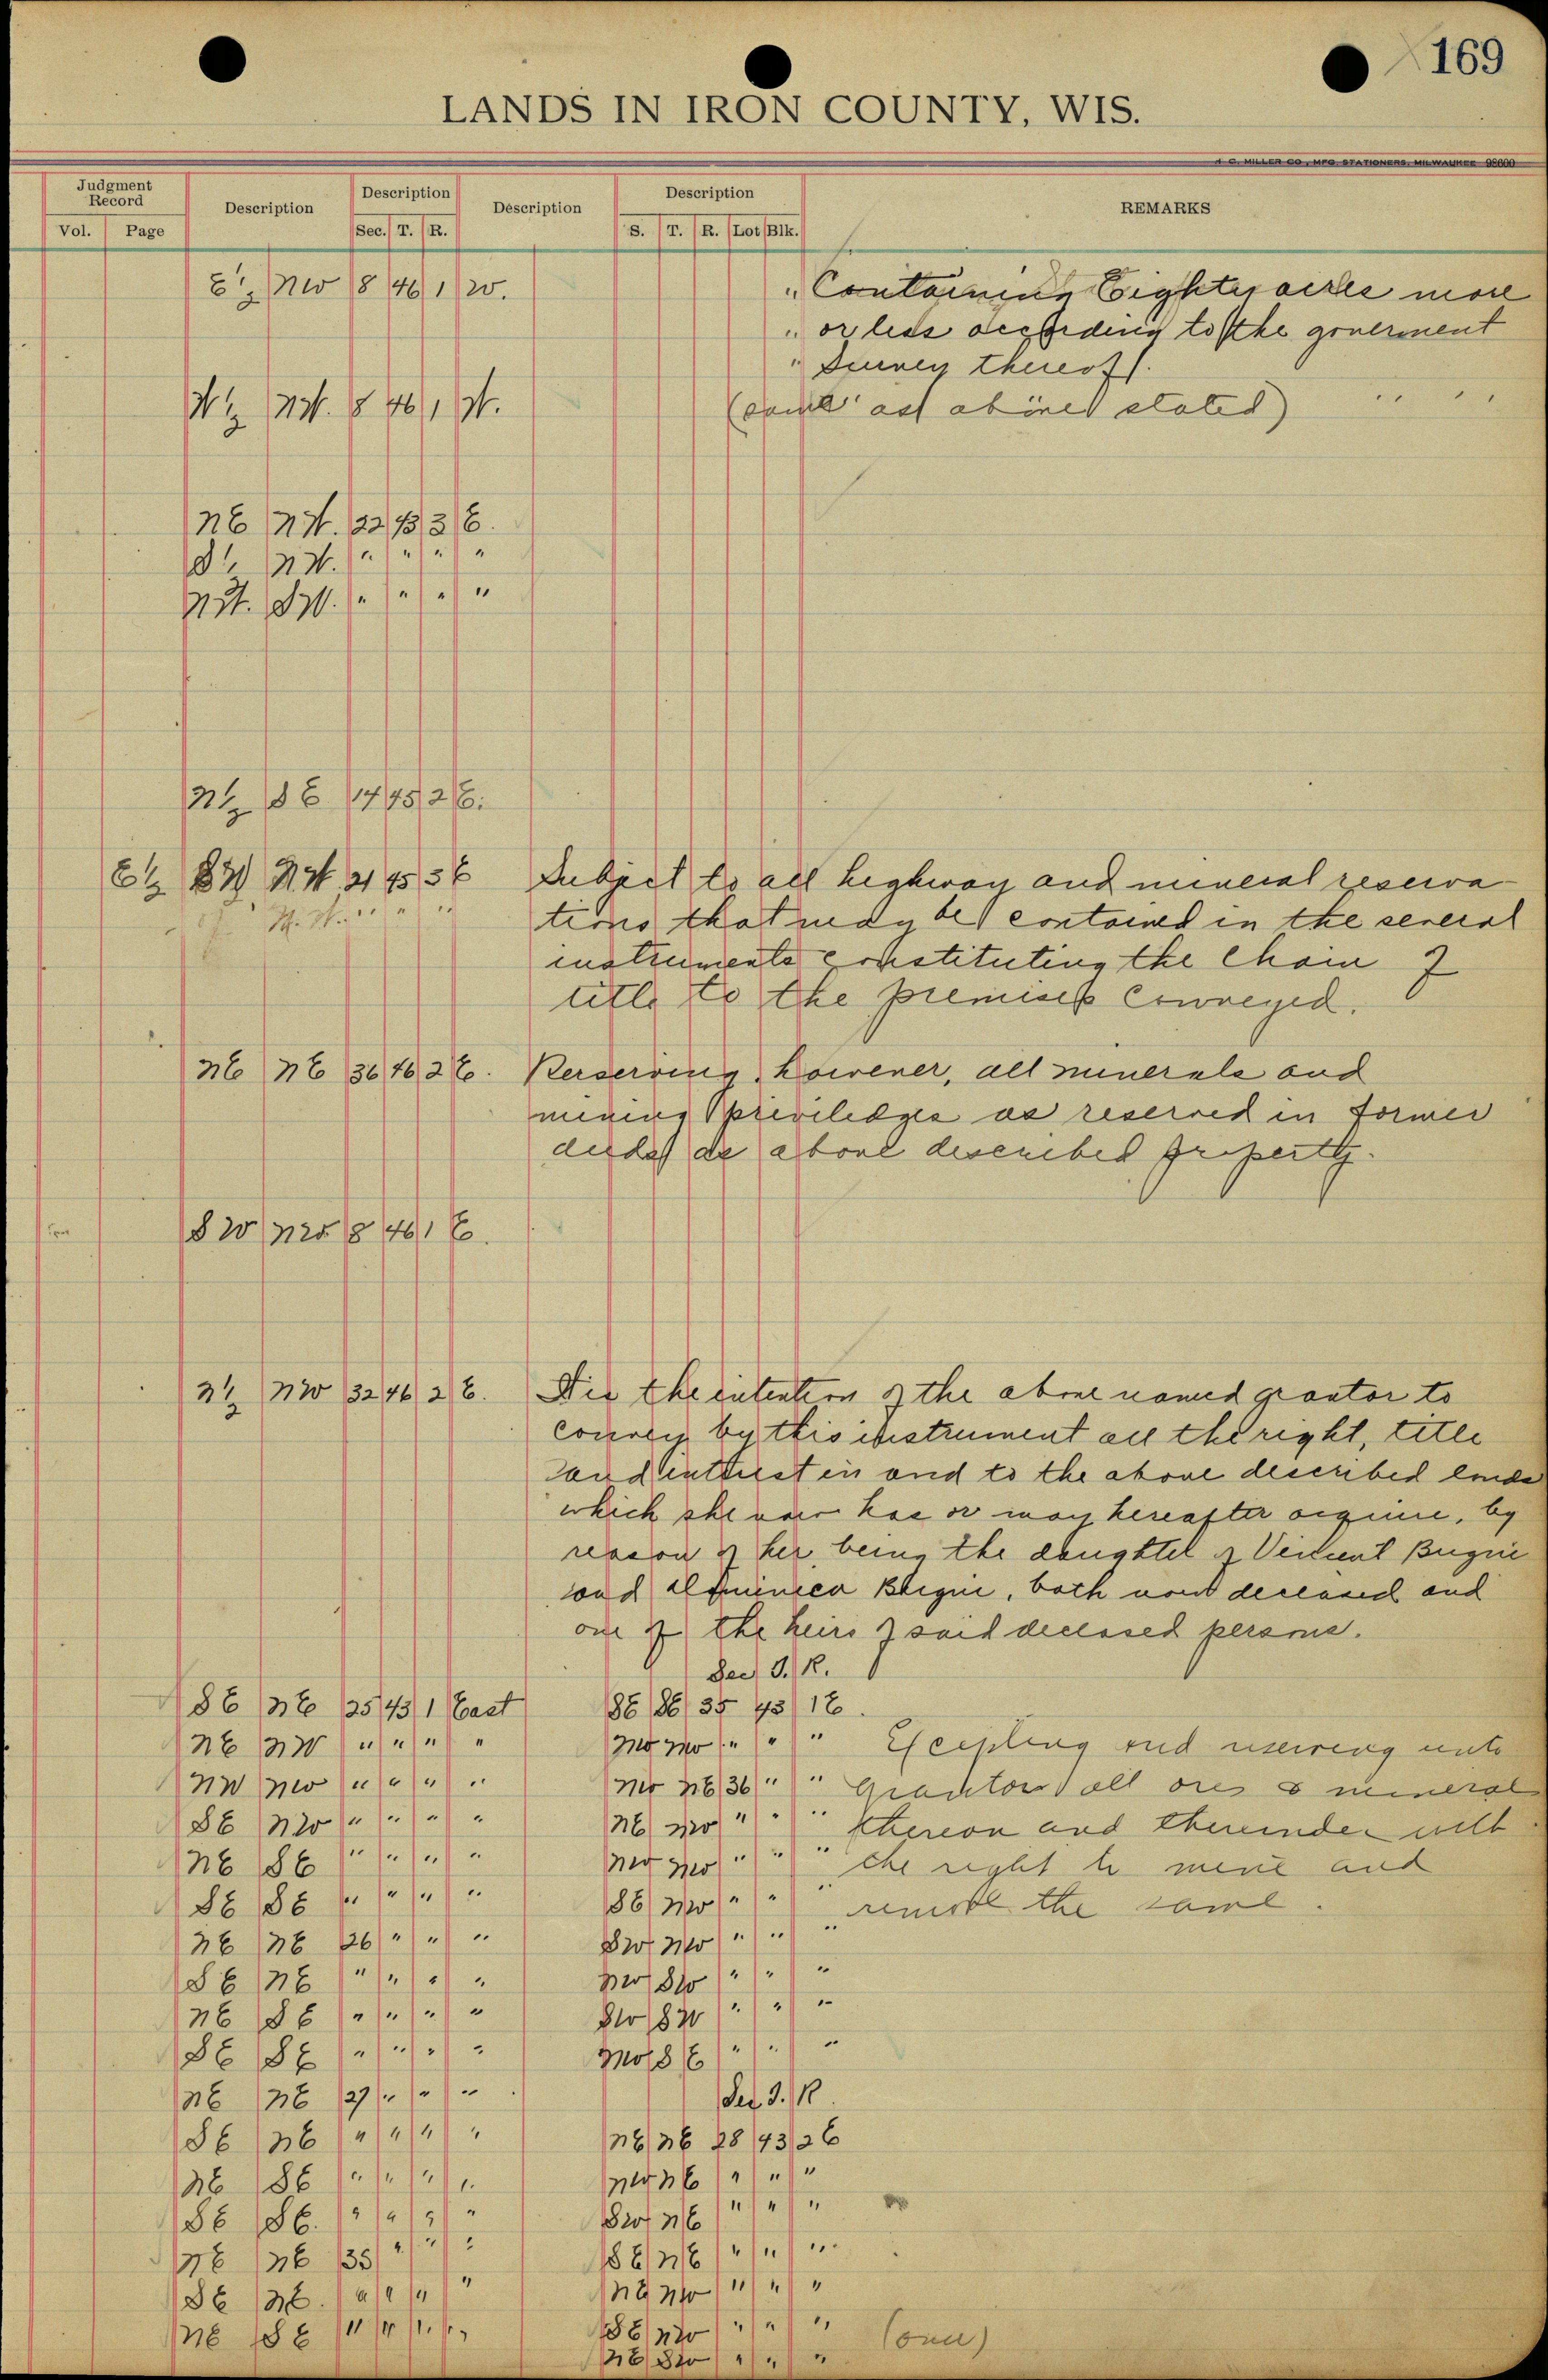 169
LANDS IN IRON COUNTY, WIS.
H. C. MILLER CO., MFG. STATIONERS, MILWAUKEE 98600
Judgment Record Description Description Description Description REMARKS
Vol. Page Sec. T. R. S. T. R. Lot Blk.
E½ NW 8 46 1 W. " Containing Eighty acres more
" or less according to the goverment
" Survey thereof.
N½ NW. 8 46 1 W. (same as above stated)
NE NW. 22 43 3 E.
S½ NW. " " " "
NW. SW. " " " "
N½ SE 14 45 2 E.
E½ SW NW 21 45 3 E Subject to all highway and mineral reserva-
tions that may be contained in the several
instruments constituting the chain of
title to the premises conveyed.
NE NE 36 46 2 E. Rerserving, however, all minerals and
mining priviledges as reserved in former
deeds as above described property.
SW NW 8 46 1 E.
N½ NW 32 46 2 E. the intention of the above named grantor to
convey by this instrument all the right, title
and interest in and to the above described lands
which she now has or may hereafter acquire, by
reason of her being the daughter of Vincent Bugni
and Dominica Bugni, both now deceased and
one of the heirs of said deceased persons.
Sec T. R.
SE NE 25 43 1 East SE SE 35 43 1 E.
NE NW " " " " NW NW " " " Excepting and reserving unto
NW NW " " " " NW NE 36 " " Grantors all ores & mineral
SE NW " " " " NE NW " " " thereon and thereunder with
NE SE " " " " NW NW " " " the right to mine and
SE SE " " " " SE NW " " " remove the same.
NE NE 26 " " " SW NW " " "
SE NE " " " " NW SW " " "
NE SE " " " " SW SW " " "
SE SE " " " " NW SE " " "
NE NE 27 " " " Sec T. R
SE NE " " " " NE NE 28 43 2 E
NE SE " " " " NW NE " " "
SE SE. " " " " SW NE " " "
NE NE 35 " " " SE NE " " "
SE NE. " " " " NE NW " " "
NE SE " " " " SE NW " " "
NE SW " " "